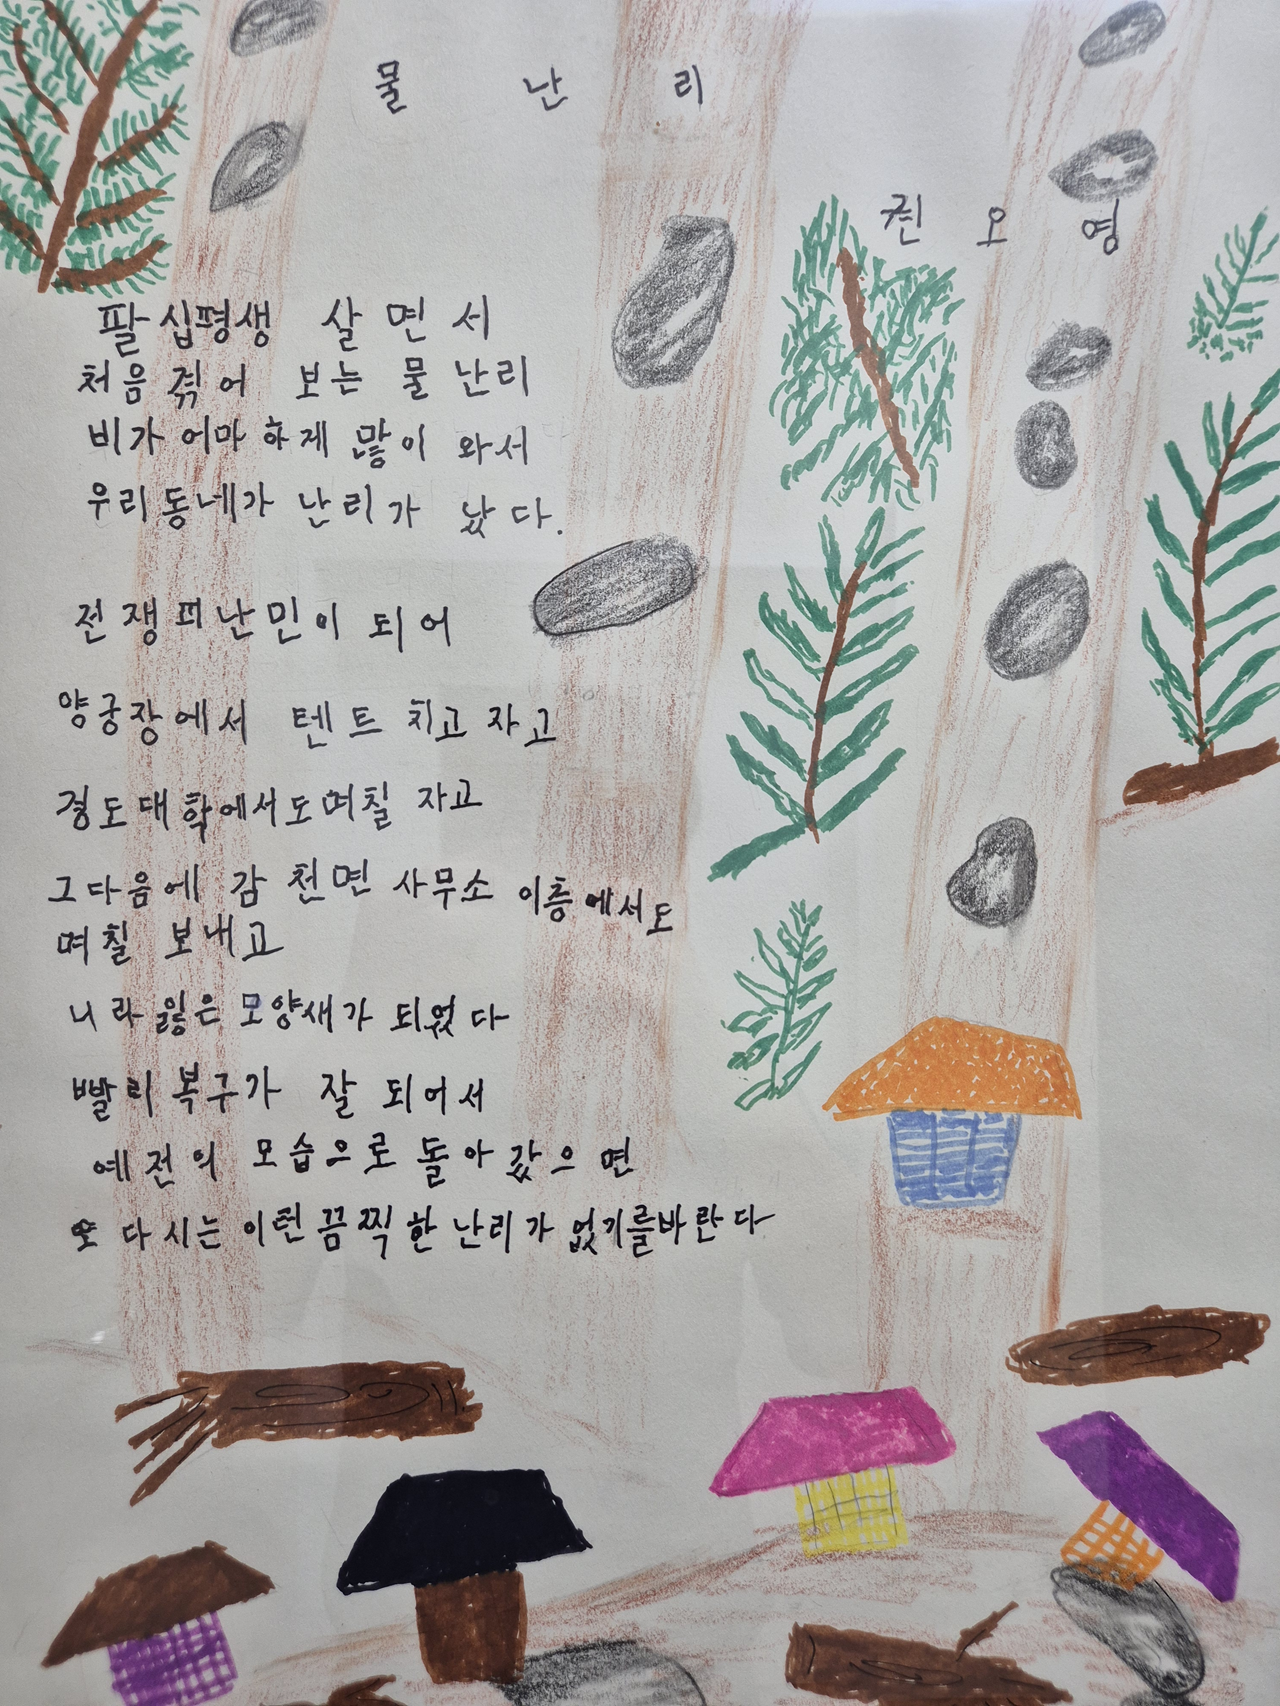 물 난 리
권 오 영
팔십평생 살면서
처음 겪어 보는 물 난리
비가 어마하게 많이 와서
우리동네가 난리가 났다.
전쟁피난민이 되어
양궁장에서 텐트 치고 자고
경도대학에서도며칠 자고
그다음에 감천면 사무소 이층에서도
며칠 보내고
나라 잃은 모양새가 되었다
빨리 복구가 잘 되어서
예전의 모습으로 돌아갔으면
또 다시는 이런 끔찍한 난리가 없기를바란다